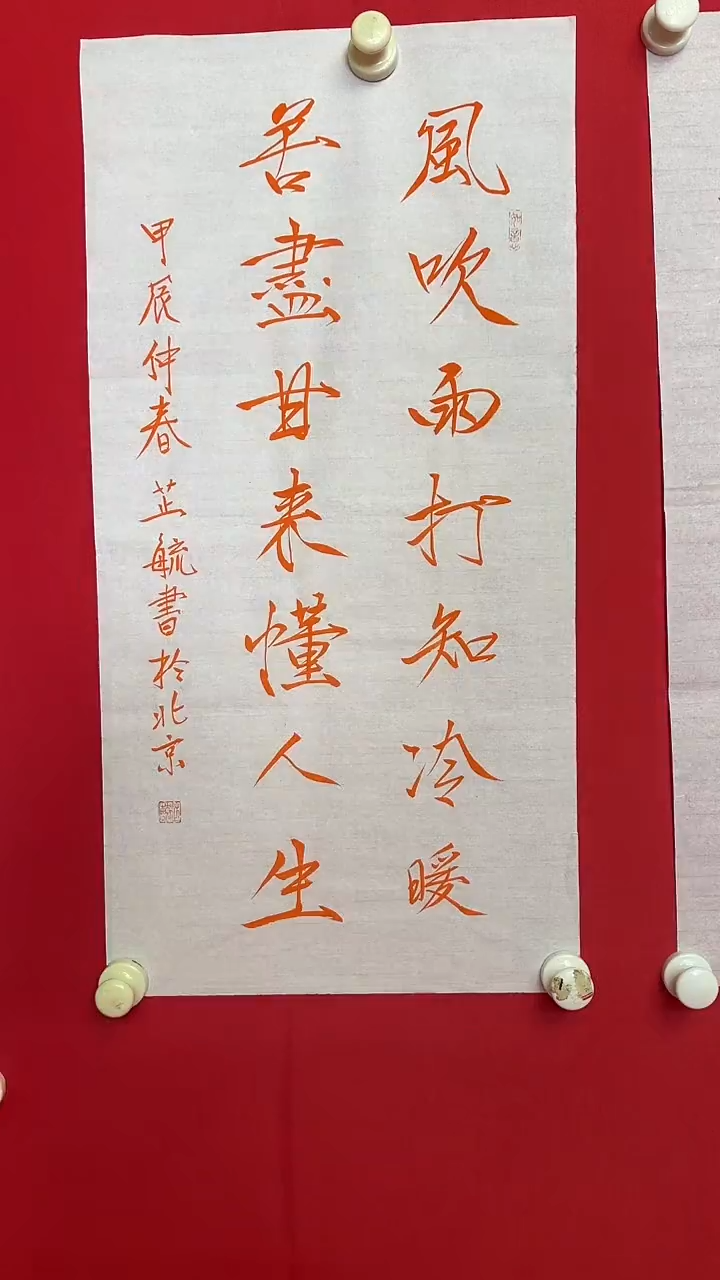 風吹雨打知冷暖
苦盡甘来懂人生
甲辰仲春芷毓書於北京